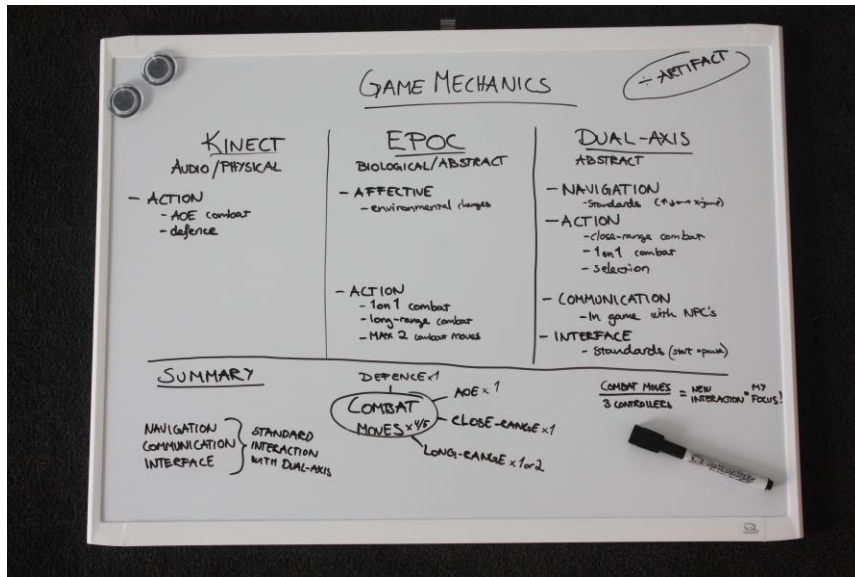 GAME MECHANICS
÷ ARTIFACT
KINECT
AUDIO/PHYSICAL
- ACTION
- AOE combat
- defence
EPOC
BIOLOGICAL/ABSTRACT
- AFFECTIVE
- environmental changes
- ACTION
- 1 on 1 combat
- long-range combat
- MAX 2 combat moves
DUAL-AXIS
ABSTRACT
- NAVIGATION
- Standards (↑↓←→ + jump)
- ACTION
- close-range combat
- 1 on 1 combat
- selection
- COMMUNICATION
- In game with NPC's
- INTERFACE
- Standards (start + pause)
SUMMARY
NAVIGATION
COMMUNICATION
INTERFACE
STANDARD
INTERACTION
WITH DUAL-AXIS
DEFENCE x1
AOE x 1
COMBAT
MOVES x 4/5
CLOSE-RANGE x1
LONG-RANGE x 1 or 2
COMBAT MOVES
3 CONTROLLERS
= NEW
INTERACTION =
MY
FOCUS!